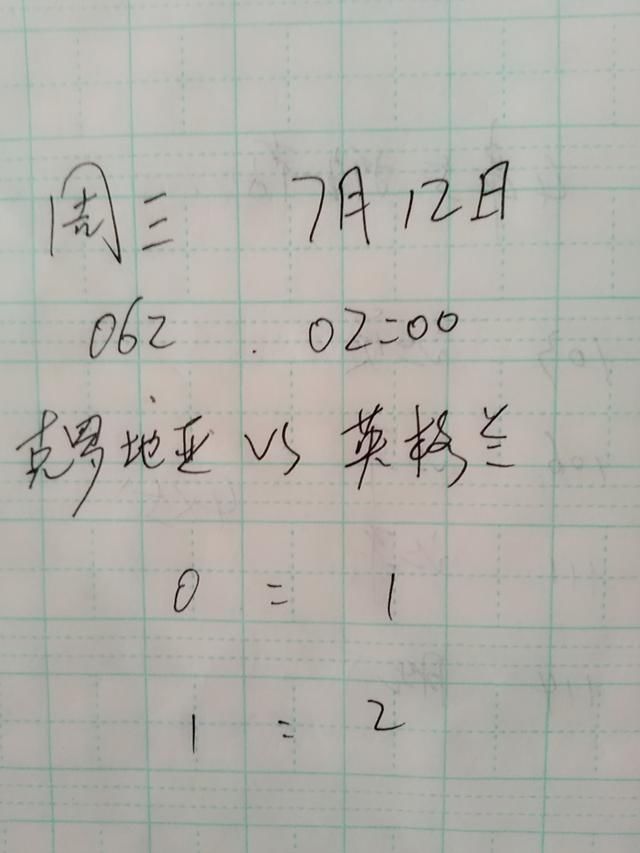 周三 7月12日
062 . 02:00
克罗地亚 VS 英格兰
0 : 1
1 : 2